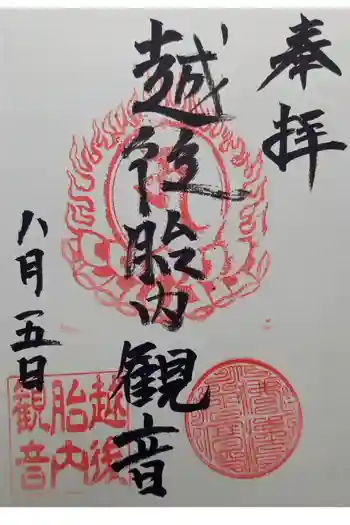 奉拝
越後胎内観音
八月一五日
越後
胎内
観音